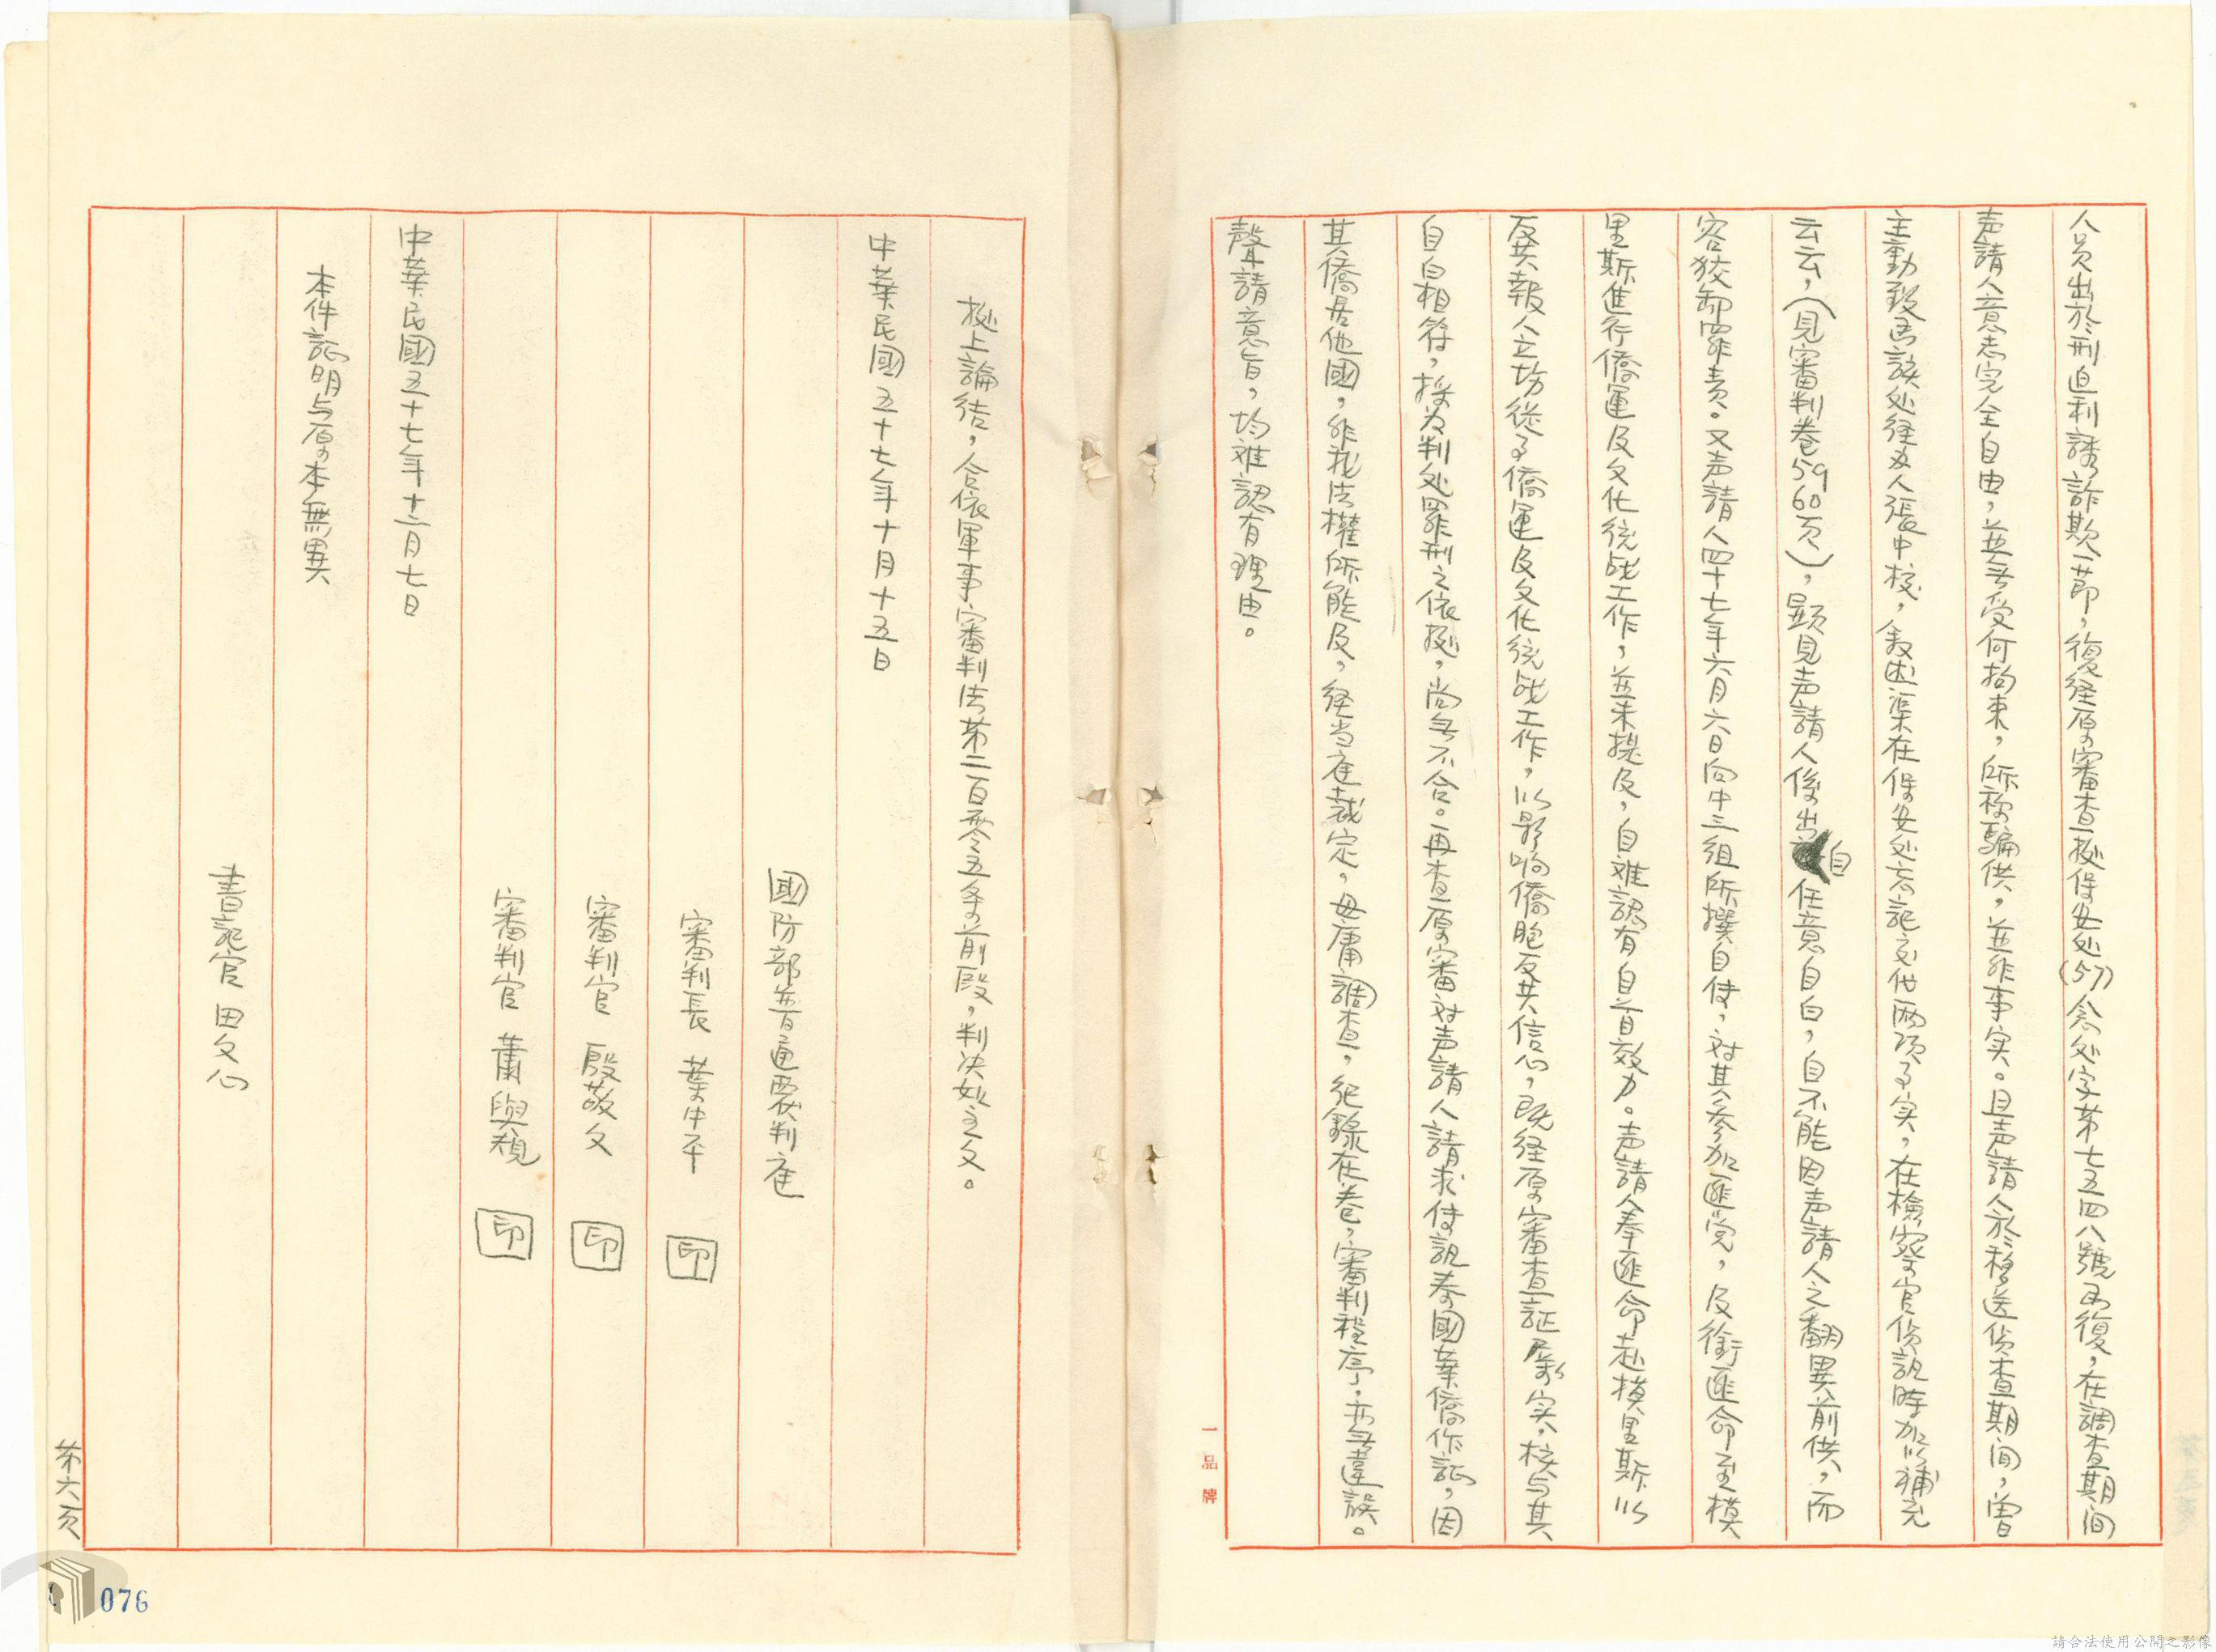 人員出於刑迫利誘詐欺一節，復經原審查據保安處(57)念处字第七五四八號函復，在調查期間
声請人意志完全自由，並無受何拘束，所称騙供，並非事实。且声請人於移送偵查期间，曾
主動致函該处経办人張中校，敘述渠在保安处忘記交代兩項事实，在檢察官偵訊時加以補充
云云，（見審判卷59 60頁），顯見声請人係出自任意自白，自不能因声請人之翻異前供，而
容狡卸罪責。又声請人四十七年六月六日向中三組所撰自傳，对其参加匪党，及銜匪命至模
里斯進行僑運及文化統战工作，並未提及，自难認有自首效力。声請人奉匪命赴模里斯以
反共報人立場從事僑運及文化統战工作，以影响僑胞反共信心，既経原審查証屬实，核与其
自白相符，採为判处罪刑之依据，尚無不合。再查原審对声請人請求传訊泰國華僑作証，因
其僑居他國，非我法權所能及，経当庭裁定，毋庸調查，紀錄在卷，審判程序，亦無違誤。
聲請意旨，均难認有理由。
一品牌
据上論結，合依軍事審判法第二百零五条前段，判决如主文。
中華民國五十七年十月十五日
國防部普通覆判庭
審判長 葉中平 印
審判官 殷敬文 印
審判官 蕭與規 印
中華民國五十七年十二月七日
本件証明与原本無異
書記官 田文心
第六頁
076
請合法使用公開之影像